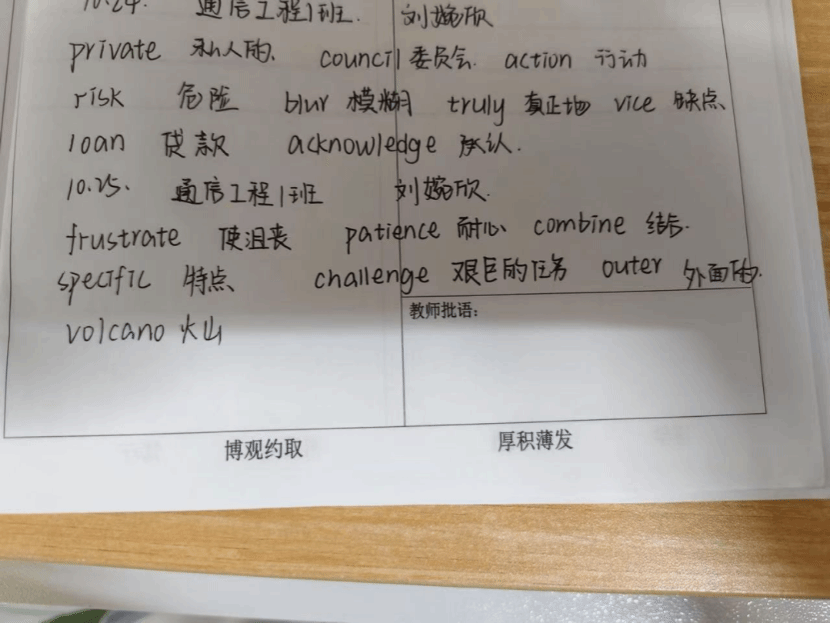 10.24. 通信工程1班. 刘婉欣
private 私人的. council 委员会. action 行动
risk 危险 blur 模糊 truly 真正地 vice 缺点、
loan 贷款 acknowledge 承认.
10.25. 通信工程1班 刘婉欣.
frustrate 使沮丧 patience 耐心 combine 结合.
specific 特点 challenge 艰巨的任务 outer 外面的.
volcano 火山
教师批语:
博观约取 厚积薄发